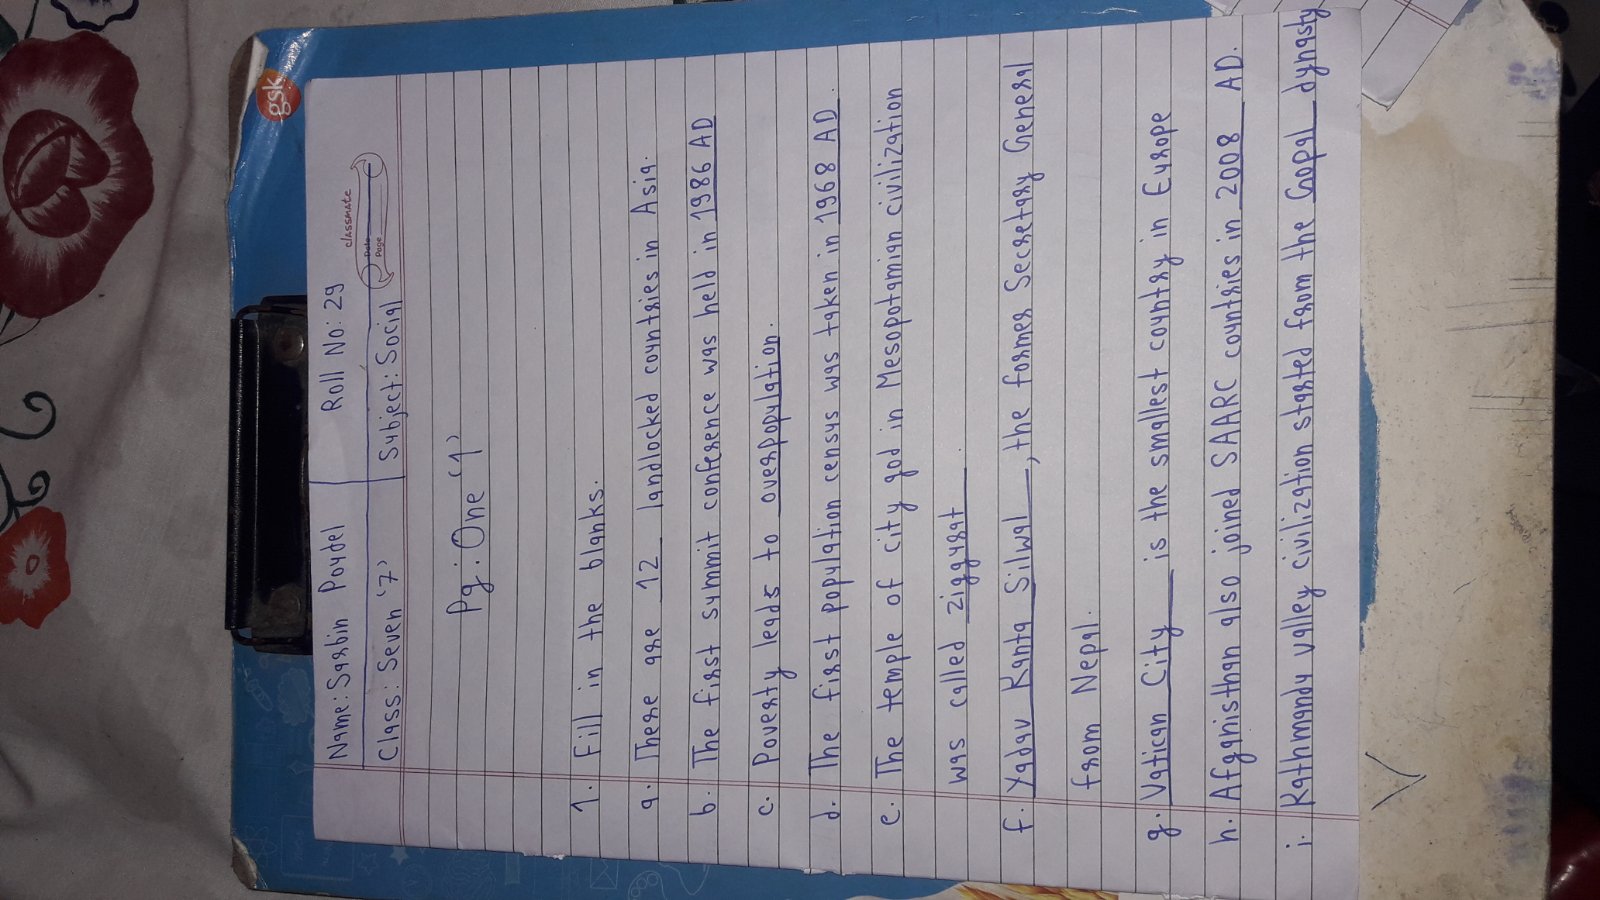 gsk
classmate
Date
Page
Name: Sarbin Poudel Roll No: 29
Class: Seven '7' Subject: Social
Pg: One '1'
1. Fill in the blanks.
a. There are 12 landlocked countries in Asia.
b. The first summit conference was held in 1986 AD
c. Poverty leads to overpopulation.
d. The first population census was taken in 1968 AD.
e. The temple of city god in Mesopotamian civilization
was called ziggurat.
f. Yadav Kanta Silwal, the former Secretary General
from Nepal.
g. Vatican City is the smallest country in Europe
h. Afganisthan also joined SAARC countries in 2008 AD.
i. Kathmandu valley civilization started from the Gopal dynasty